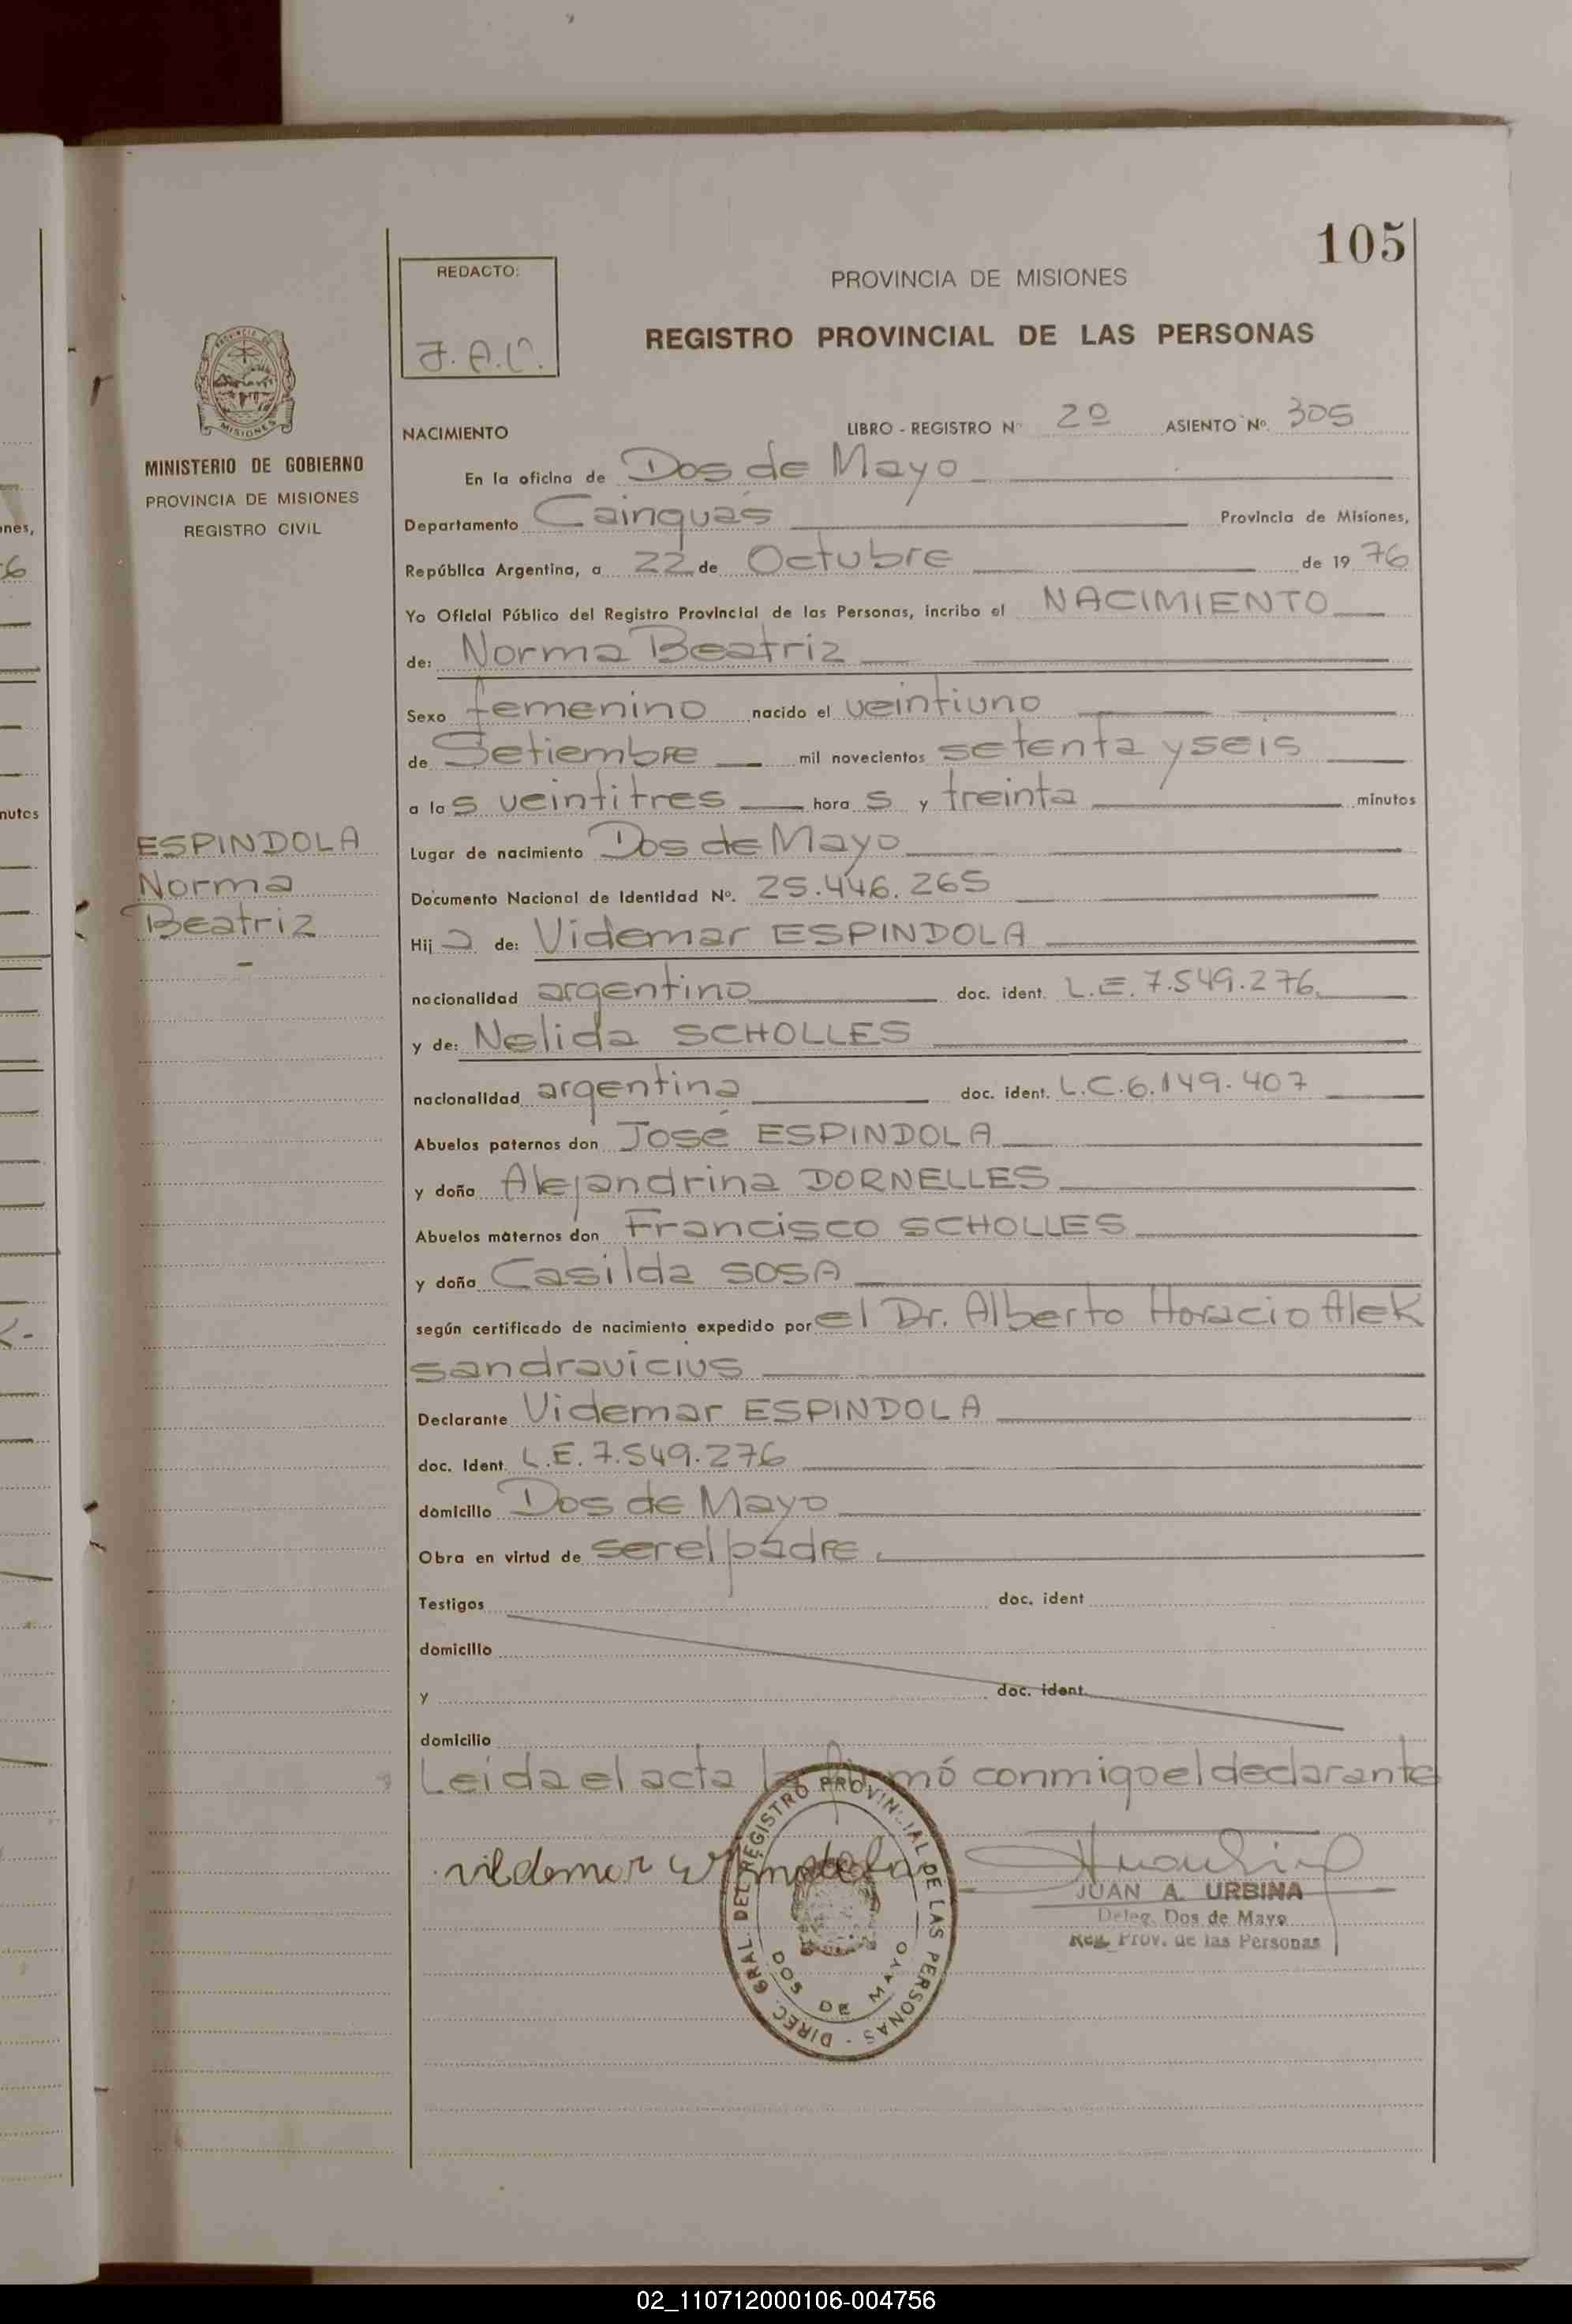 105
REDACTO:
J.A.C.
PROVINCIA DE MISIONES
REGISTRO PROVINCIAL DE LAS PERSONAS
MISIONES
MINISTERIO DE GOBIERNO
PROVINCIA DE MISIONES
REGISTRO CIVIL
ESPINDOLA
Norma
Beatriz
-
NACIMIENTO LIBRO - REGISTRO Nº 2º ASIENTO Nº. 305
En la oficina de Dos de Mayo
Departamento Cainguás Provincia de Misiones,
República Argentina, a 22 de Octubre de 19 76
Yo Oficial Público del Registro Provincial de las Personas, incribo el NACIMIENTO
de: Norma Beatriz
Sexo femenino nacido el veintiuno
de Setiembre mil novecientos setenta y seis
a las veintitres horas y treinta minutos
Lugar de nacimiento Dos de Mayo
Documento Nacional de Identidad Nº. 25.446.265
Hija de: Videmar ESPINDOLA
nacionalidad argentino doc. ident. L.E. 7.549.276
y de: Nelida SCHOLLES
nacionalidad argentina doc. ident. L.C. 6.149.407
Abuelos paternos don José ESPINDOLA
y doña Alejandrina DORNELLES
Abuelos maternos don Francisco SCHOLLES
y doña Casilda SOSA
según certificado de nacimiento expedido por el Dr. Alberto Horacio Alek
sandravicius
Declarante Videmar ESPINDOLA
doc. Ident. L.E. 7.549.276
domicilio Dos de Mayo
Obra en virtud de ser el padre.
Testigos doc. ident
domicilio
y doc. ident
domicilio
Leida el acta la firmó conmigo el declarante
vildemar
DIREC. GRAL. DEL REGISTRO PROVINCIAL DE LAS PERSONAS -
DOS DE MAYO
JUAN A. URBINA
Deleg. Dos de Mayo
Reg. Prov. de las Personas
02_110712000106-004756